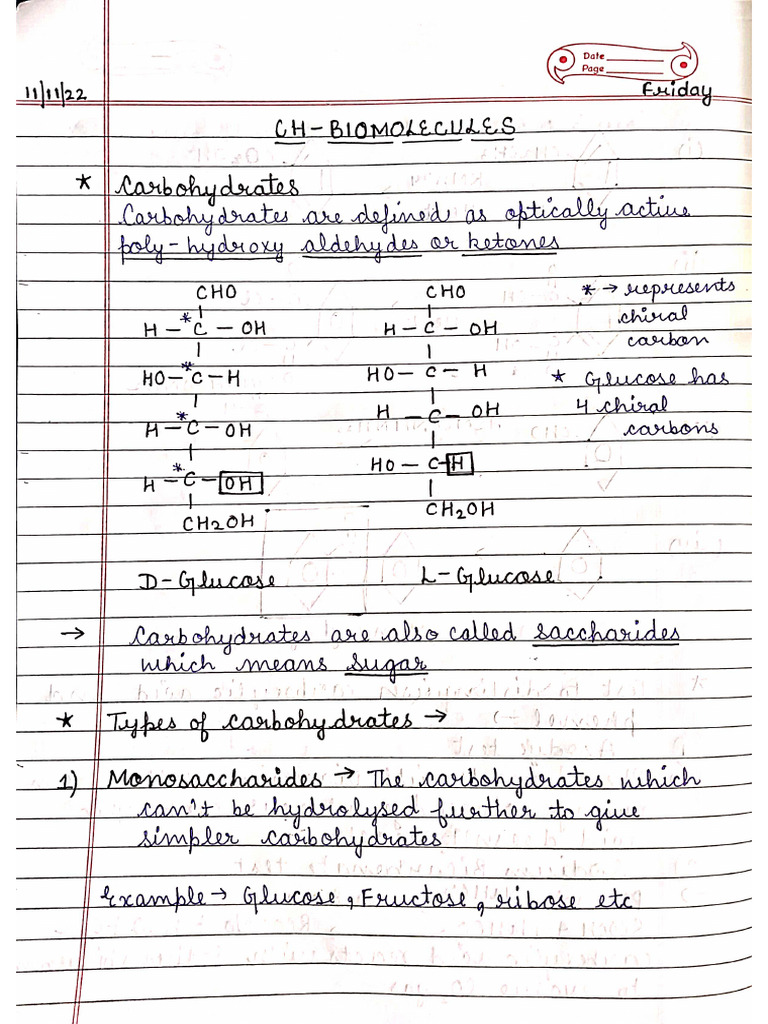 Date
Page
11/11/22
Friday
CH-BIOMOLECULES
* Carbohydrates
Carbohydrates are defined as optically active
poly-hydroxy aldehydes or ketones
CHO CHO * → represents
H - *C - OH H - C - OH chiral
carbon
HO - *C - H HO - C - H * Glucose has
H - *C - OH H - C - OH 4 chiral
carbons
H - *C - OH HO - C - H
CH2OH CH2OH
D-Glucose L-Glucose
→ Carbohydrates are also called saccharides
which means sugar
* Types of carbohydrates →
1) Monosaccharides → The carbohydrates which
can't be hydrolysed further to give
simpler carbohydrates
Example → Glucose, Fructose, ribose etc